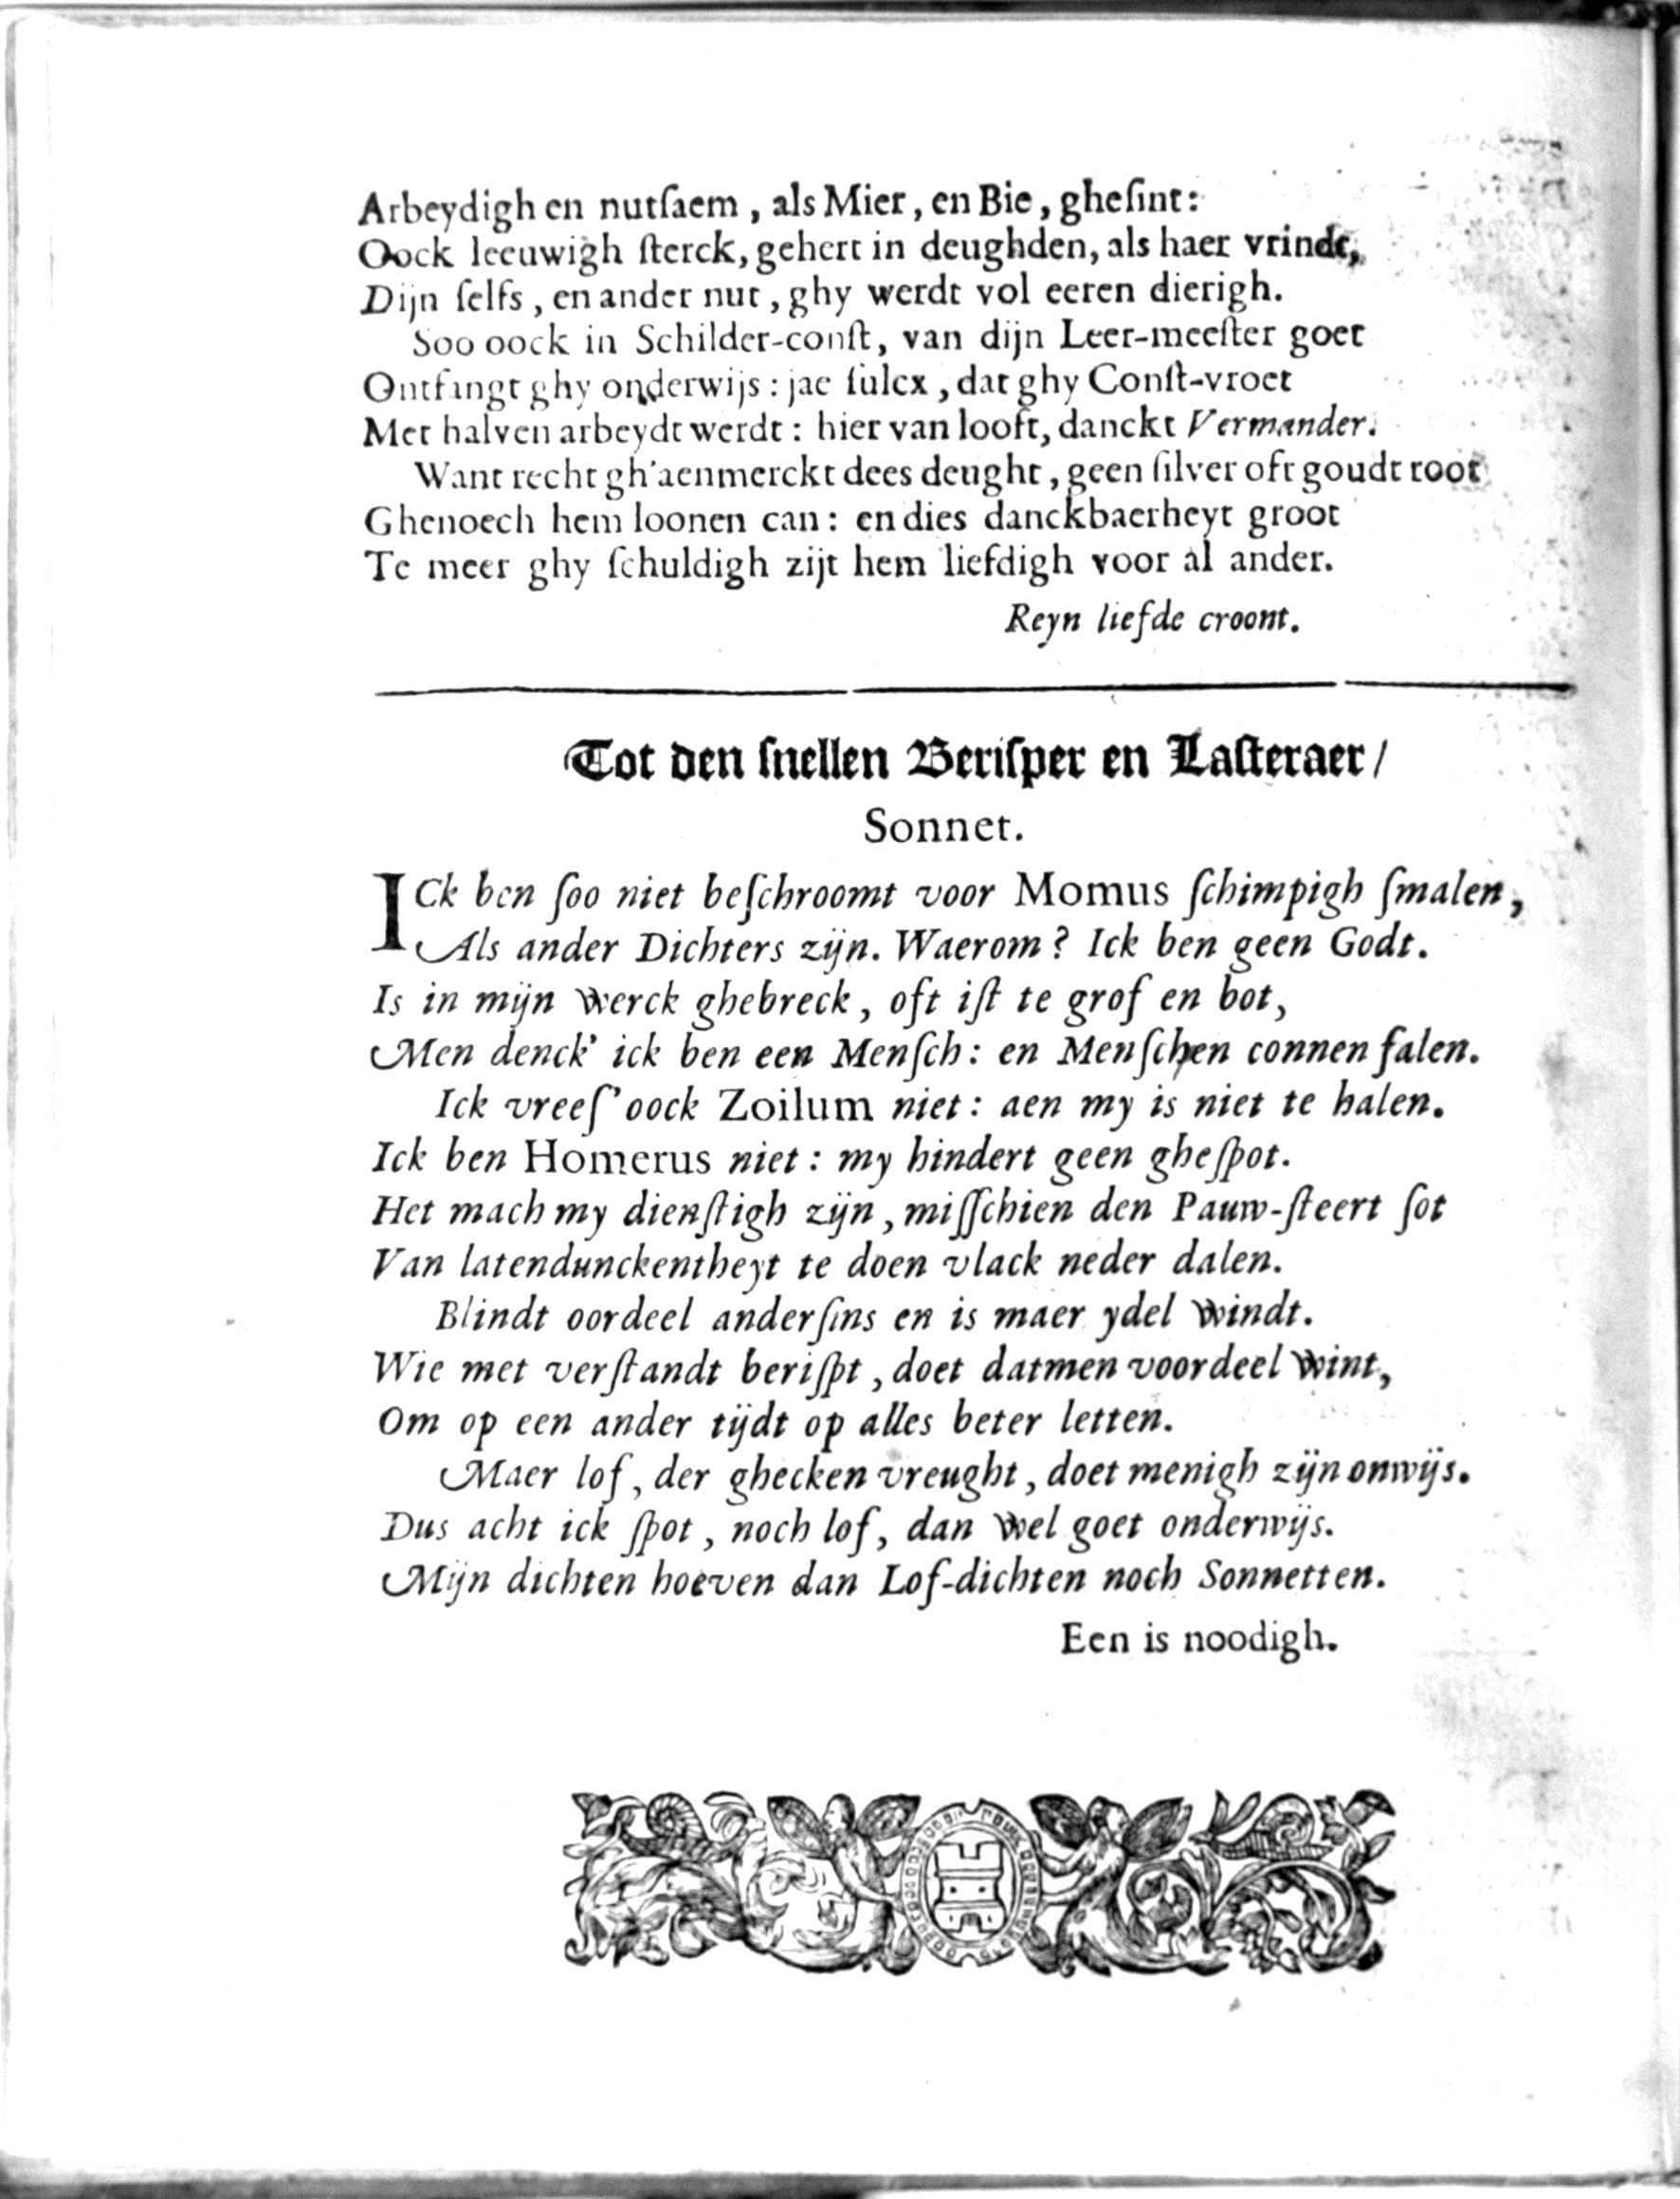 Arbeydigh en nutſaem, als Mier, en Bie, gheſint:
Oock leeuwigh ſterck, gehert in deughden, als haer vrindt,
Dijn ſelfs, en ander nut, ghy werdt vol eeren dierigh.
Soo oock in Schilder-conſt, van dijn Leer-meeſter goet
Ontfangt ghy onderwijs: jae ſulcx, dat ghy Conſt-vroet
Met halven arbeydt werdt: hier van looft, danckt Vermander.
Want recht gh'aenmerckt dees deught, geen ſilver oft goudt root
Ghenoech hem loonen can: en dies danckbaerheyt groot
Te meer ghy ſchuldigh zijt hem liefdigh voor al ander.
Reyn liefde croont.
Tot den ſnellen Beriſper en Laſteraer/
Sonnet.
ICk ben ſoo niet beſchroomt voor Momus ſchimpigh ſmalen,
Als ander Dichters zijn. Waerom? Ick ben geen Godt.
Is in mijn werck ghebreck, oft iſt te grof en bot,
Men denck' ick ben een Menſch: en Menſchen connen falen.
Ick vreeſ' oock Zoilum niet: aen my is niet te halen.
Ick ben Homerus niet: my hindert geen gheſpot.
Het mach my dienſtigh zijn, miſſchien den Pauw-ſteert ſot
Van latendunckentheyt te doen vlack neder dalen.
Blindt oordeel anderſins en is maer ydel windt.
Wie met verſtandt beriſpt, doet datmen voordeel wint,
Om op een ander tijdt op alles beter letten.
Maer lof, der ghecken vreught, doet menigh zijn onwijs.
Dus acht ick ſpot, noch lof, dan wel goet onderwijs.
Mijn dichten hoeven dan Lof-dichten noch Sonnetten.
Een is noodigh.